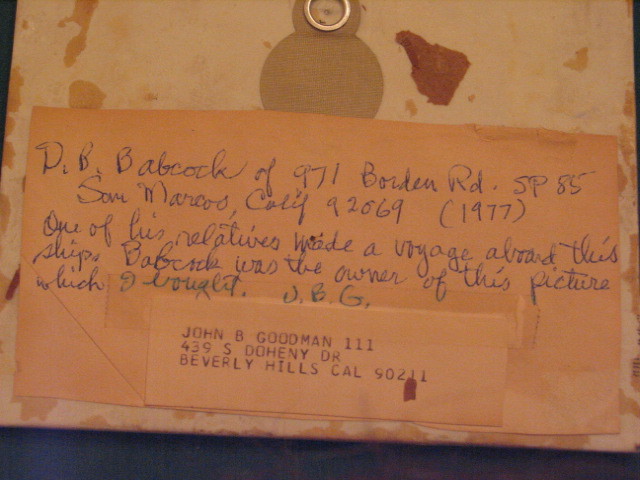 D. B. Babcock of 971 Borden Rd. SP 85
San Marcos, Calif 92069 (1977)
One of his relatives made a voyage aboard this
ship. Babcock was the owner of this picture
which I bought. J. B. G.
JOHN B GOODMAN 111
439 S DOHENY DR
BEVERLY HILLS CAL 90211